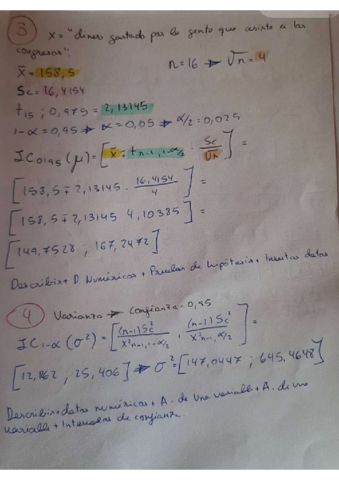 ③ X = "dinero gastado por la gente que asiste a los
congresos".
n = 16 → √n = 4
x̄ = 158,5
Sc = 16,4154
t15; 0,975 = 2,13145
1-α = 0,95 → α = 0,05 → α/2 = 0,025
IC0,95 (μ) = [x̄ ∓ tn-1, 1-α/2 · Sc/√n] =
[158,5 ∓ 2,13145 · 16,4154/4] =
[158,5 ∓ 2,13145 4,10385] =
[149,7528, 167,2472]
Describir + D. Numéricos + Pruebas de hipótesis + Insertar datos
④ Varianza → Confianza = 0,95
IC1-α (σ²) = [(n-1)Sc²/X²n-1, 1-α/2 , (n-1)Sc²/X²n-1, α/2] =
[12,162, 25,406] → σ² = [147,0447; 645,4648]
Describir + datos numéricos + A. de una variable + A. de una
variable + Intervalos de confianza.